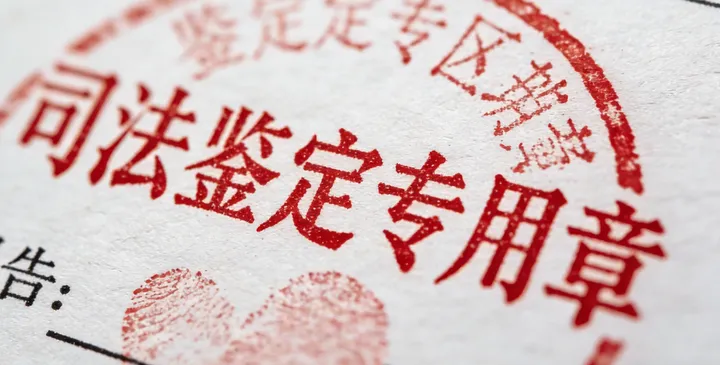 鉴定定专区
司法鉴定专用章
告: